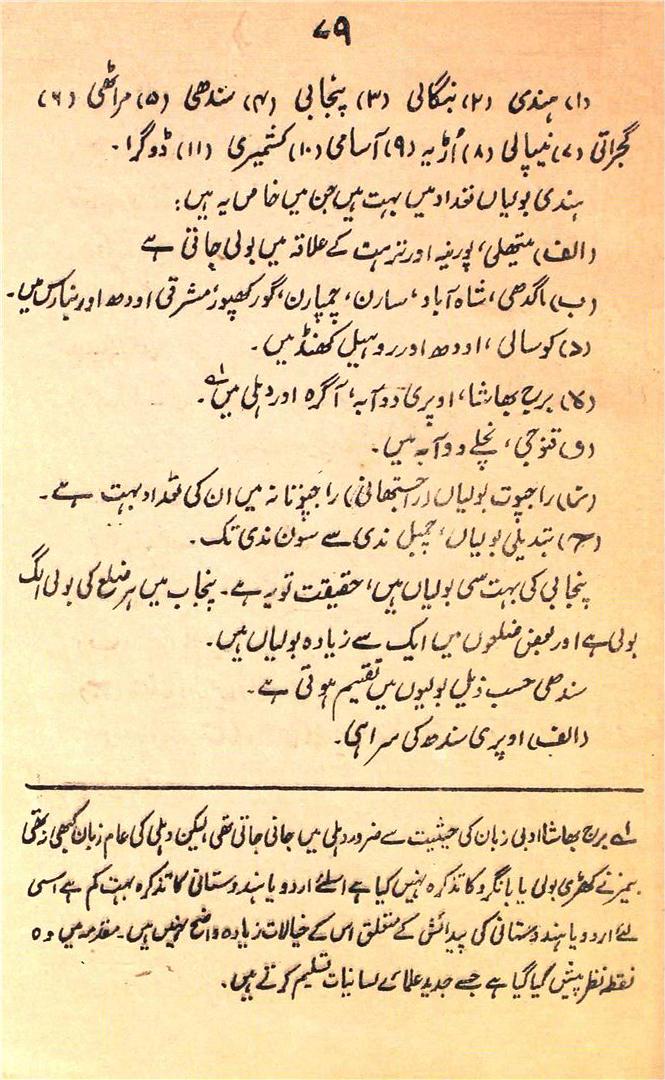 ۷۹
(۱) ہندی (۲) بنگالی (۳) پنجابی (۴) سندھی (۵) مراٹھی (۶)
گجراتی (۷) نیپالی (۸) اُڑیہ (۹) آسامی (۱۰) کشمیری (۱۱) ڈوگرا۔
ہندی بولیاں تعداد میں بہت ہیں جن میں خاص یہ ہیں:
(الف) میتھلی، پورنیہ اور ترہت کے علاقہ میں بولی جاتی ہے
(ب) ماگدھی، شاہ آباد، سارن، چمپارن، گورکھپور، مشرقی اودھ اور بنارس میں۔
(د) کوسالی، اودھ اور روہیل کھنڈ میں۔
(ہ) برج بھاشا، اوپری دوآبہ، آگرہ اور دہلی میں ؂۱۔
(و) قنوجی، نچلے دوآبہ میں۔
(ز) راجپوت بولیاں (راجستھانی) راجپوتانہ میں ان کی تعداد بہت ہے۔
(ح) تبدیلی بولیاں، چمبل ندی سے سون ندی تک۔
پنجابی کی بہت سی بولیاں ہیں، حقیقت تو یہ ہے۔ پنجاب میں ہر ضلع کی بولی الگ
بولی ہے اور بعض ضلعوں میں ایک سے زیادہ بولیاں ہیں۔
سندھی حسب ذیل بولیوں میں تقسیم ہوتی ہے۔
(الف) اوپری سندھ کی سراہی۔
؂۱ برج بھاشا ادبی زبان کی حیثیت سے ضرور دہلی میں جانی جاتی تھی لیکن دہلی کی عام زبان کبھی نہ تھی
بیمز نے کھڑی بولی یا بانگرو کا تذکرہ نہیں کیا ہے اسلئے اردو یا ہندوستانی کا تذکرہ بہت کم ہے اسی
لئے اردو یا ہندوستانی کی پیدائش کے متعلق اس کے خیالات زیادہ واضح نہیں ہیں۔ مقدمہ میں وہ
نقطہ نظر پیش کیا گیا ہے جسے جدید علمائے لسانیات تسلیم کرتے ہیں۔